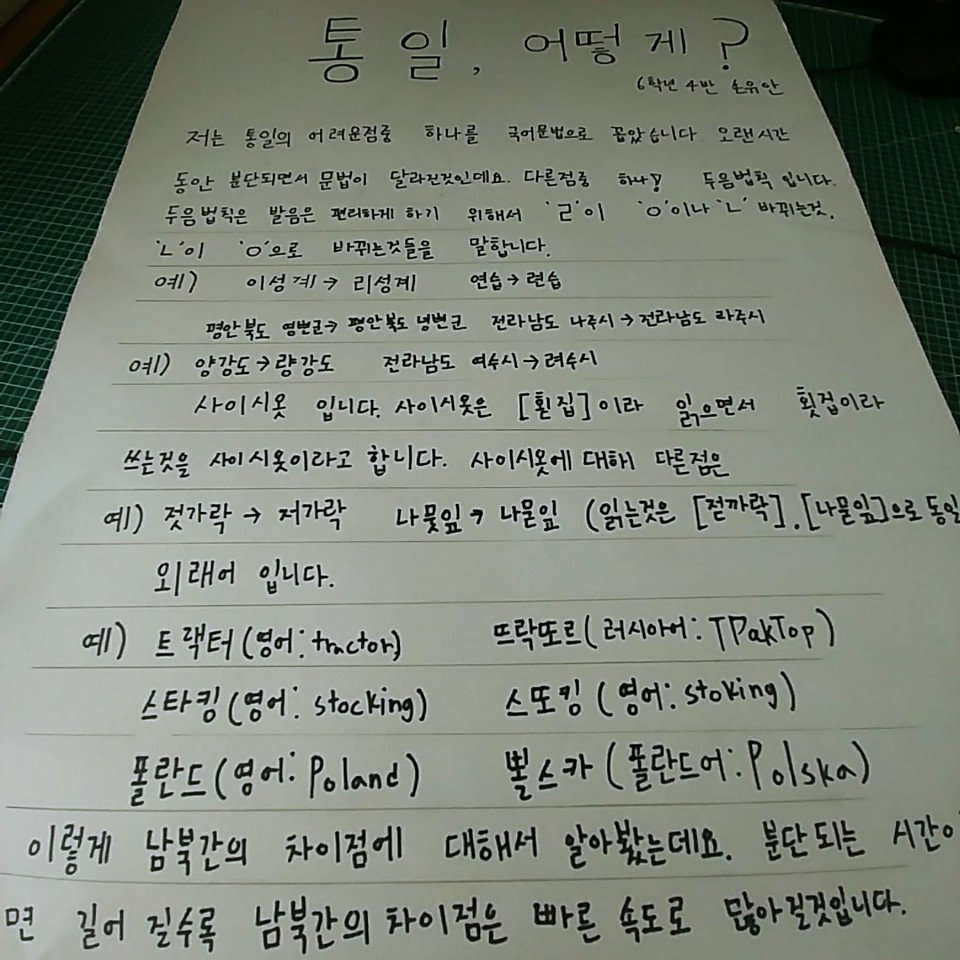 통일, 어떻게?
6학년 4반 손유안
저는 통일의 어려운점중 하나를 국어문법으로 꼽았습니다. 오랜시간
동안 분단되면서 문법이 달라진것인데요. 다른점중 하나! 두음법칙 입니다.
두음법칙은 발음은 편리하게 하기 위해서 'ㄹ'이 'ㅇ'이나 'ㄴ' 바뀌는것,
'ㄴ'이 'ㅇ'으로 바뀌는것들을 말합니다.
예) 이성계→리성계 연습→련습
평안북도 영변군→평안북도 녕변군 전라남도 나주시→전라남도 라주시
예) 양강도→량강도 전라남도 여수시→려수시
사이시옷 입니다. 사이시옷은 [횓집]이라 읽으면서 횟집이라
쓰는것을 사이시옷이라고 합니다. 사이시옷에 대해 다른점은
예) 젓가락 → 저가락 나뭇잎→나문잎 (읽는것은 [젇까락], [나문잎]으로 동일
외래어 입니다.
예) 트랙터(영어:tractor) 뜨락또르(러시아어:TPakTop)
스타킹(영어: stocking) 스또킹 (영어: stoking)
폴란드(영어: Poland) 뽈스카 (폴란드어: Polska)
이렇게 남북간의 차이점에 대해서 알아봤는데요. 분단되는 시간이
면 길어 질수록 남북간의 차이점은 빠른 속도로 많아질것입니다.